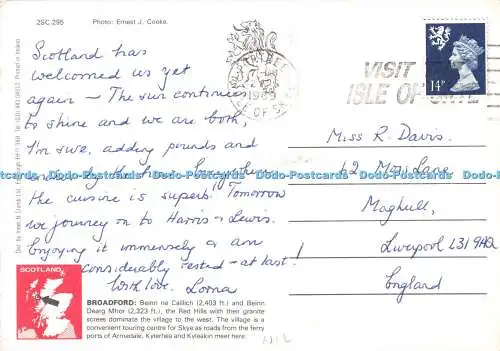 2SC 295
Photo: Ernest J. Cooke.
Scotland has
welcomed us yet
again - The sun continues
to shine and we are both,
I'm sure, adding pounds and
the
the cuisine is superb. Tomorrow
we journey on to Harris & Lewis.
Enjoying it immensely & am
considerably rested - at last!
With love. Lorna
PORTREE
1985
ISLE OF SKYE
VISIT
ISLE OF SKYE
14P
Miss R. Davis.
62 Moss Lane
Maghull,
Liverpool L31 9AQ
England
SCOTLAND
BROADFORD: Beinn na Caillich (2,403 ft.) and Beinn
Dearg Mhor (2,323 ft.), the Red Hills with their granite
screes dominate the village to the west. The village is a
convenient touring centre for Skye as roads from the ferry
ports of Armadale, Kylerhea and Kyleakin meet here.
www.postcards-uk.com